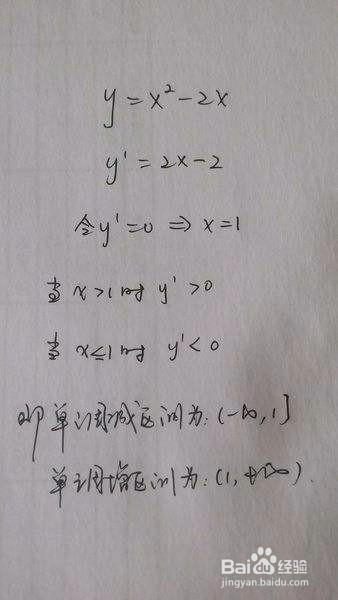 y = x² - 2x
y' = 2x - 2
令 y' = 0 ⇒ x = 1
当 x > 1 时 y' > 0
当 x ≤ 1 时 y' < 0
即 单调减区间为: (-∞, 1]
单调增区间为: (1, +∞).
Baidu经验
jingyan.baidu.com